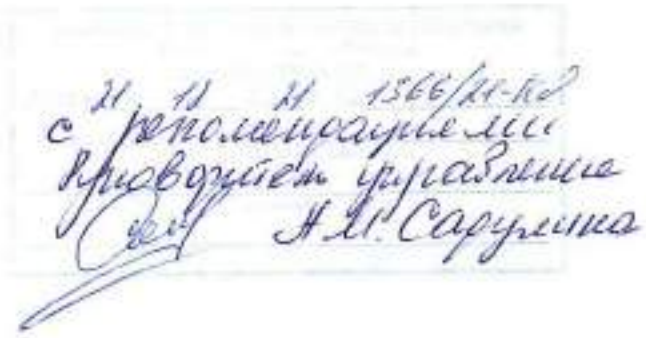 21 12 21 1566/21-КД
с рекомендациями
Руководитель управления
А.М. Сарулина